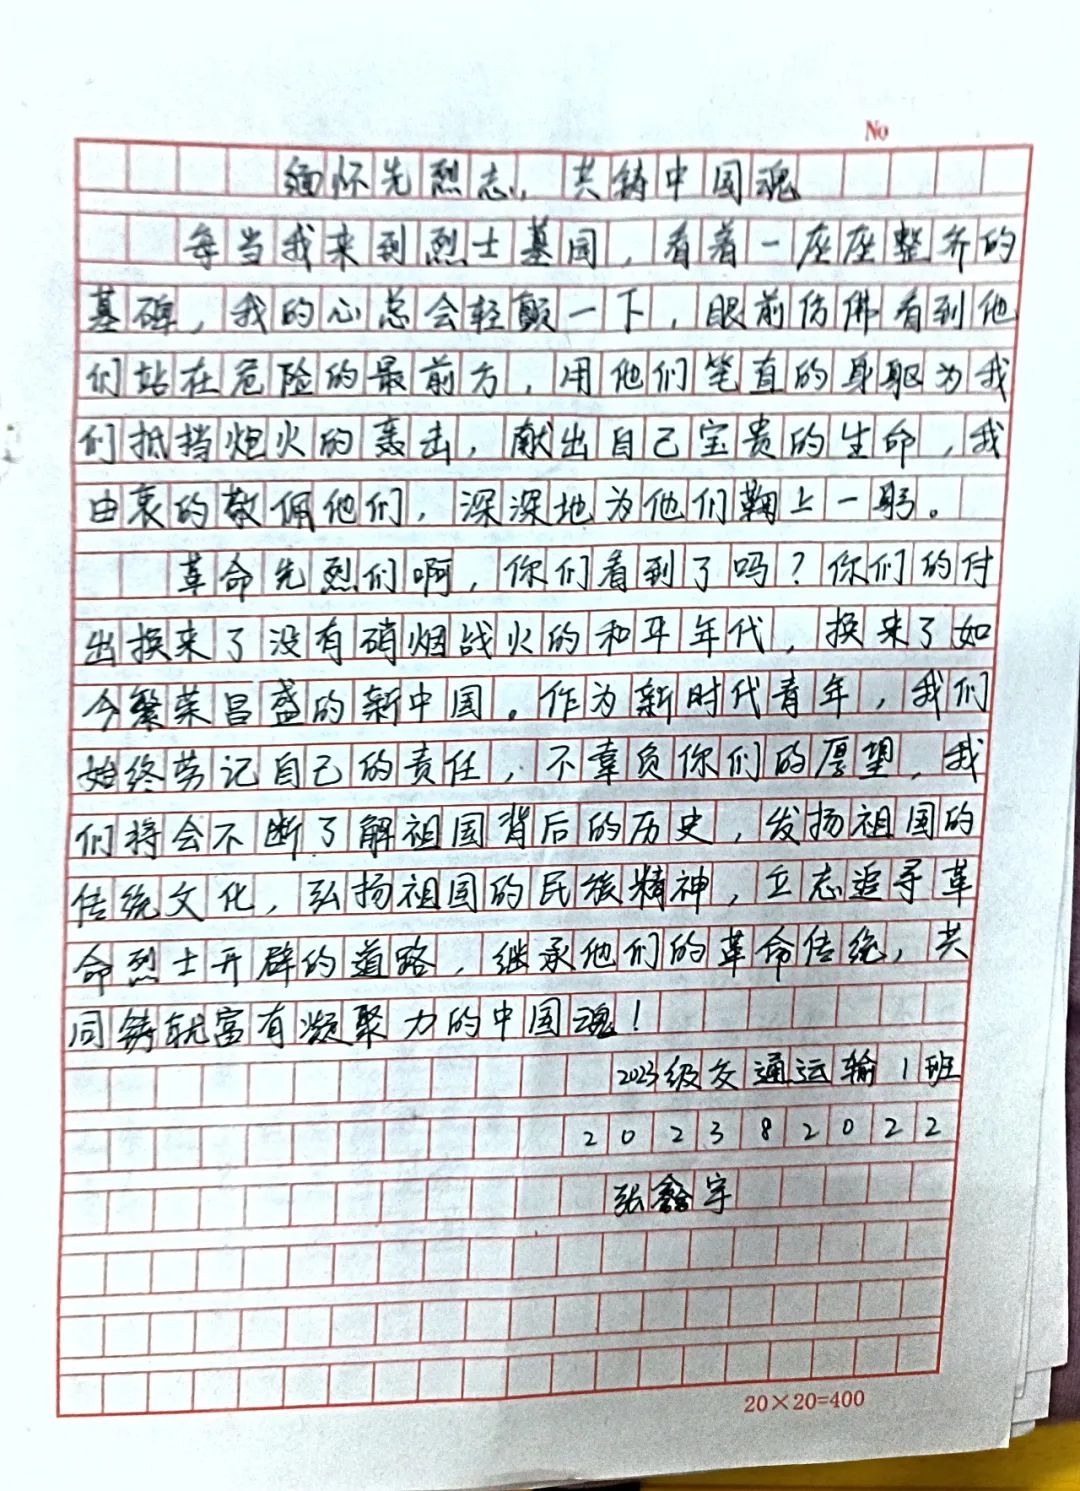 No
缅怀先烈志，共铸中国魂
每当我来到烈士墓园，看着一座座整齐的
墓碑，我的心总会轻颤一下，眼前仿佛看到他
们站在危险的最前方，用他们笔直的身躯为我
们抵挡炮火的轰击，献出自己宝贵的生命，我
由衷的敬佩他们，深深地为他们鞠上一躬。
革命先烈们啊，你们看到了吗？你们的付
出换来了没有硝烟战火的和平年代，换来了如
今繁荣昌盛的新中国。作为新时代青年，我们
始终劳记自己的责任，不辜负你们的厚望，我
们将会不断了解祖国背后的历史，发扬祖国的
传统文化，弘扬祖国的民族精神，立志追寻革
命烈士开辟的道路，继承他们的革命传统，共
同铸就富有凝聚力的中国魂！
2023级交通运输1班
202382022
张鑫宇
20×20=400